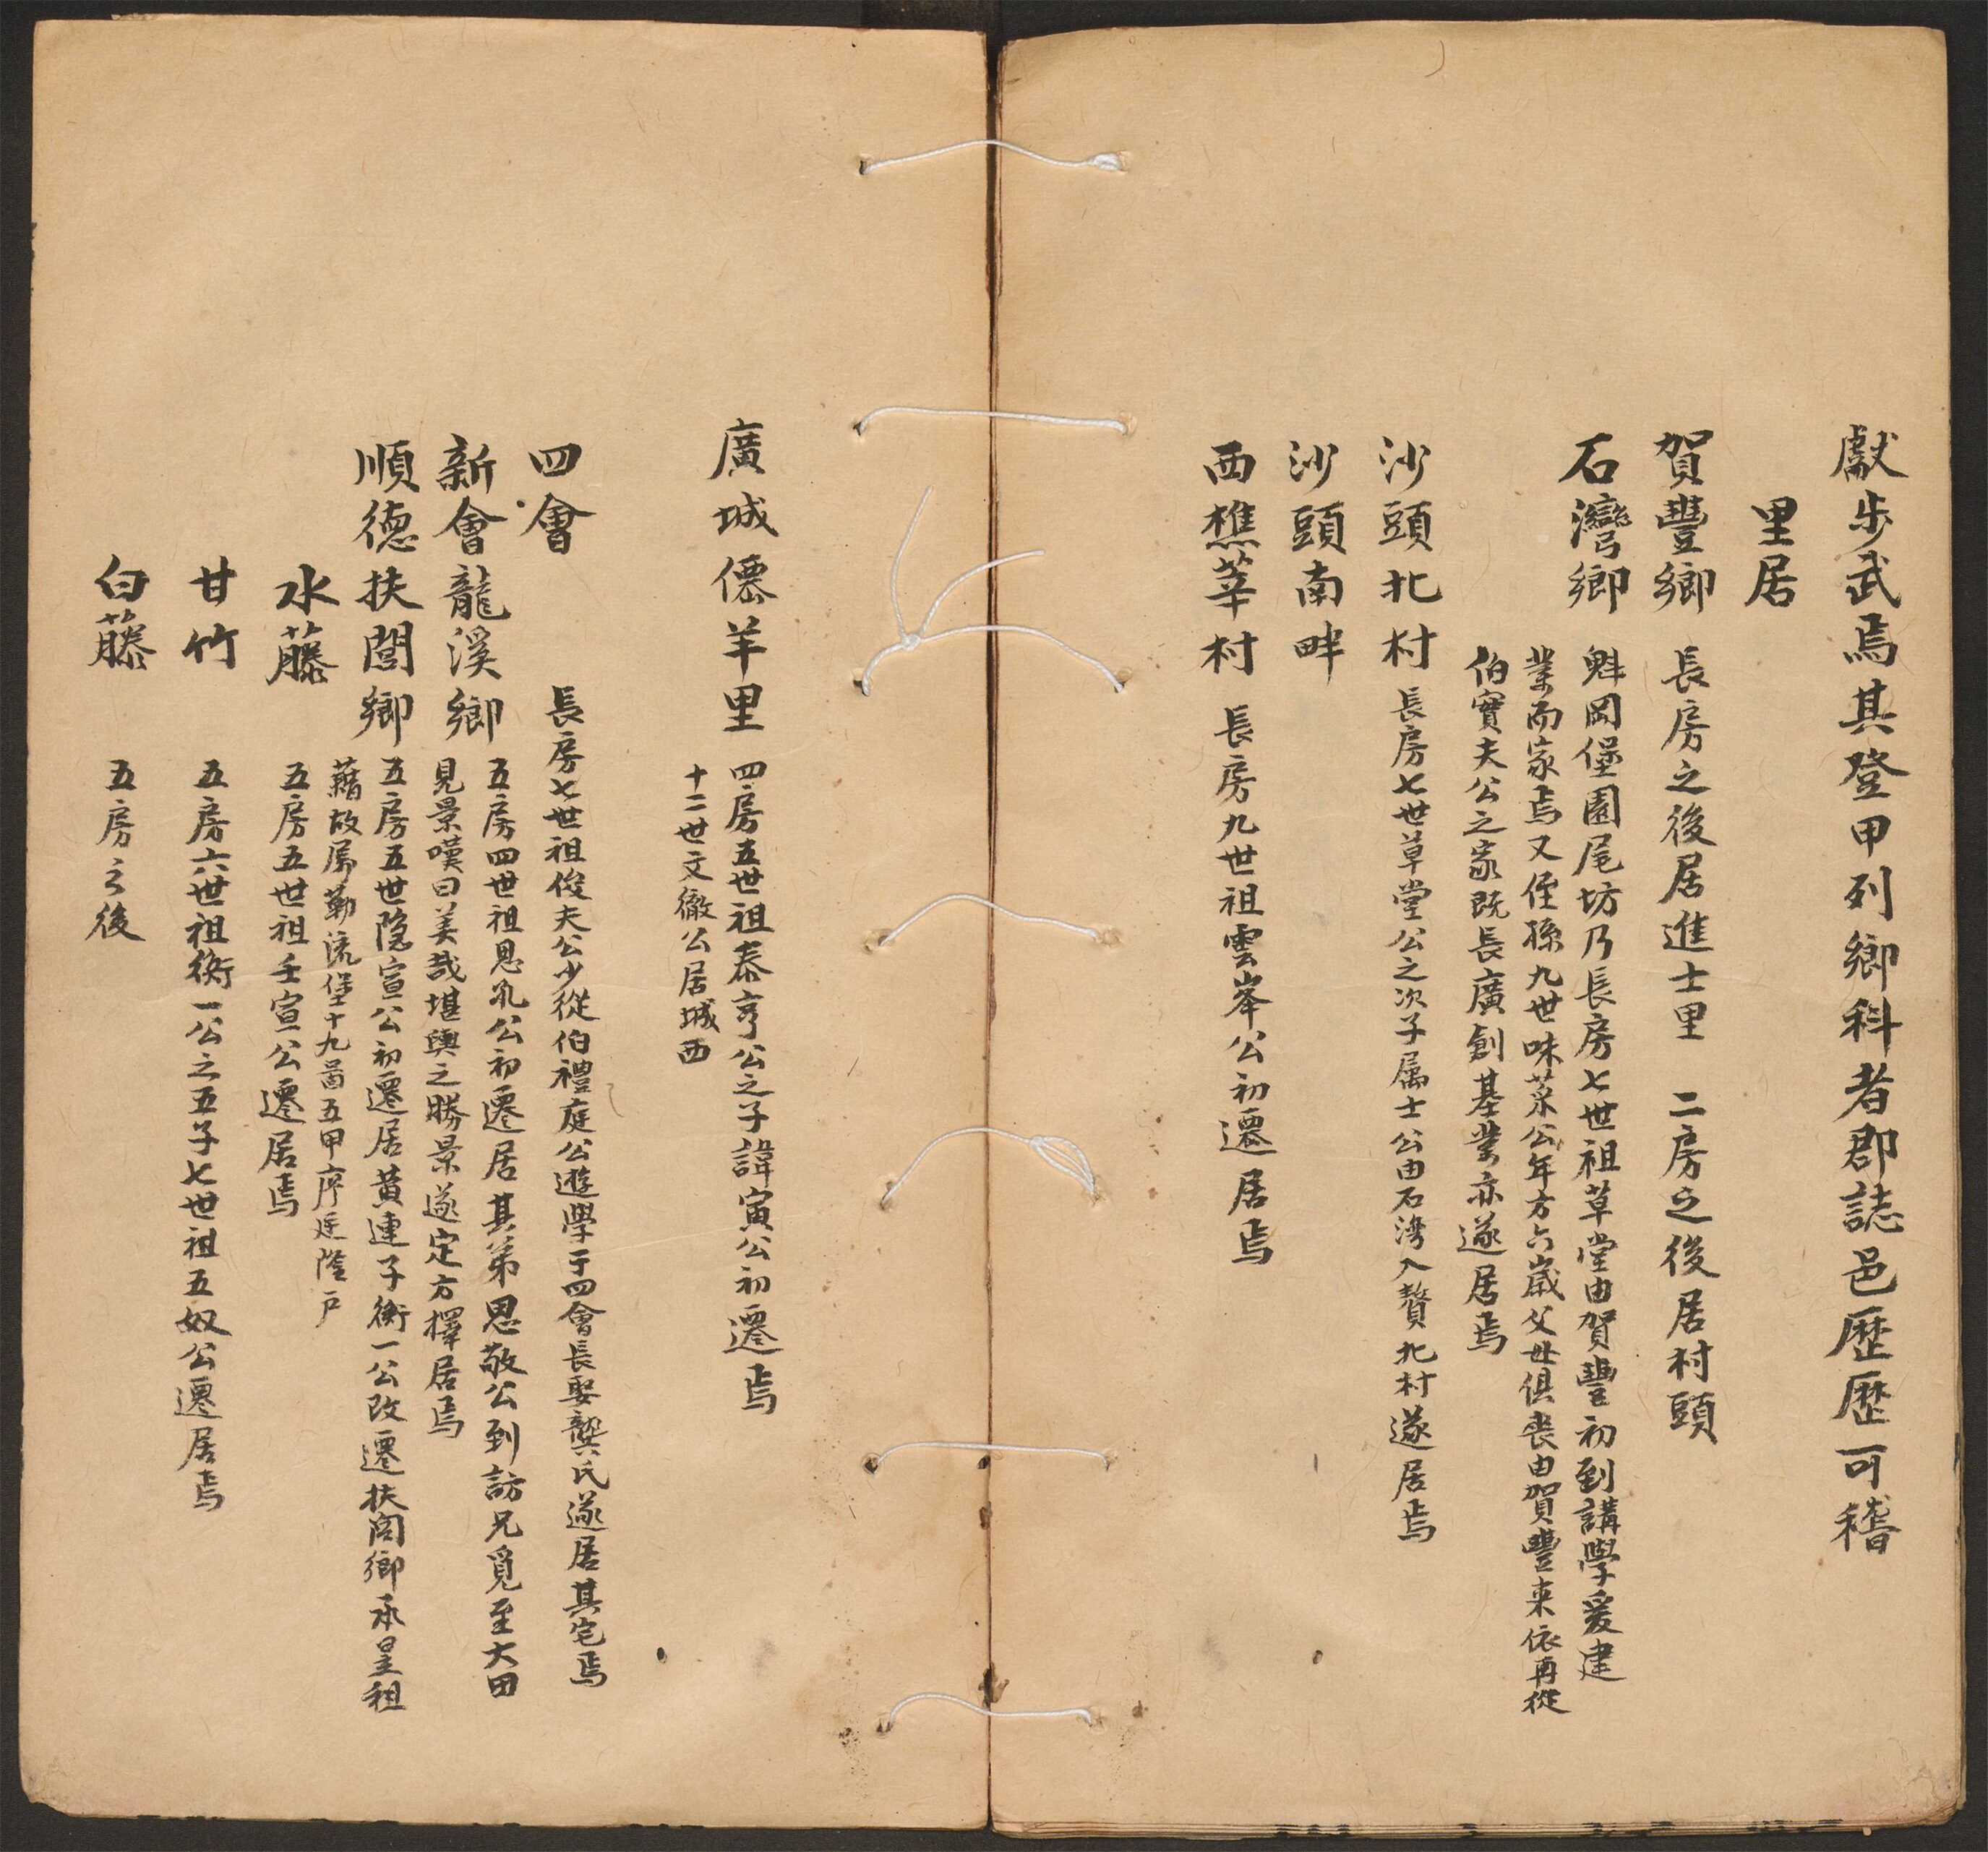 獻步武焉其登甲列鄉科者郡誌邑歷歷可稽
里居
賀豐鄉 長房之後居進士里 二房之後居村頭
石灣鄉 魁岡堡園尾坊乃長房七世祖草堂由賀豐初到講學爰建
業而家焉又侄孫九世味菜公年方六歲父母俱丧由賀豐来依再從
伯寶夫公之家既長廣創基業亦遂居焉
沙頭北村 長房七世草堂公之次子属士公由石湾入贅北村遂居焉
沙頭南畔
西樵莘村 長房九世祖雲峯公初遷居焉
廣城僊羊里 四房五世祖泰亨公之子諱寅公初遷焉
十二世文徽公居城西
四會 長房七世祖俊夫公少從伯禮庭公遊學于四會長娶龔氏遂居其宅焉
新會龍溪鄉 五房四世祖思孔公初遷居其弟思敬公到訪兄覓至大田
見景嘆曰美哉堪輿之勝景遂定方擇居焉
順德扶閭鄉 五房五世隐宣公初遷居黄連子衡一公改遷扶閭鄉承呈祖
藉故属勒流堡十九啚五甲序廷蔭户
水藤 五房五世祖壬宣公遷居焉
甘竹 五房六世祖衡一公之五子七世祖五奴公遷居焉
白藤 五房之後